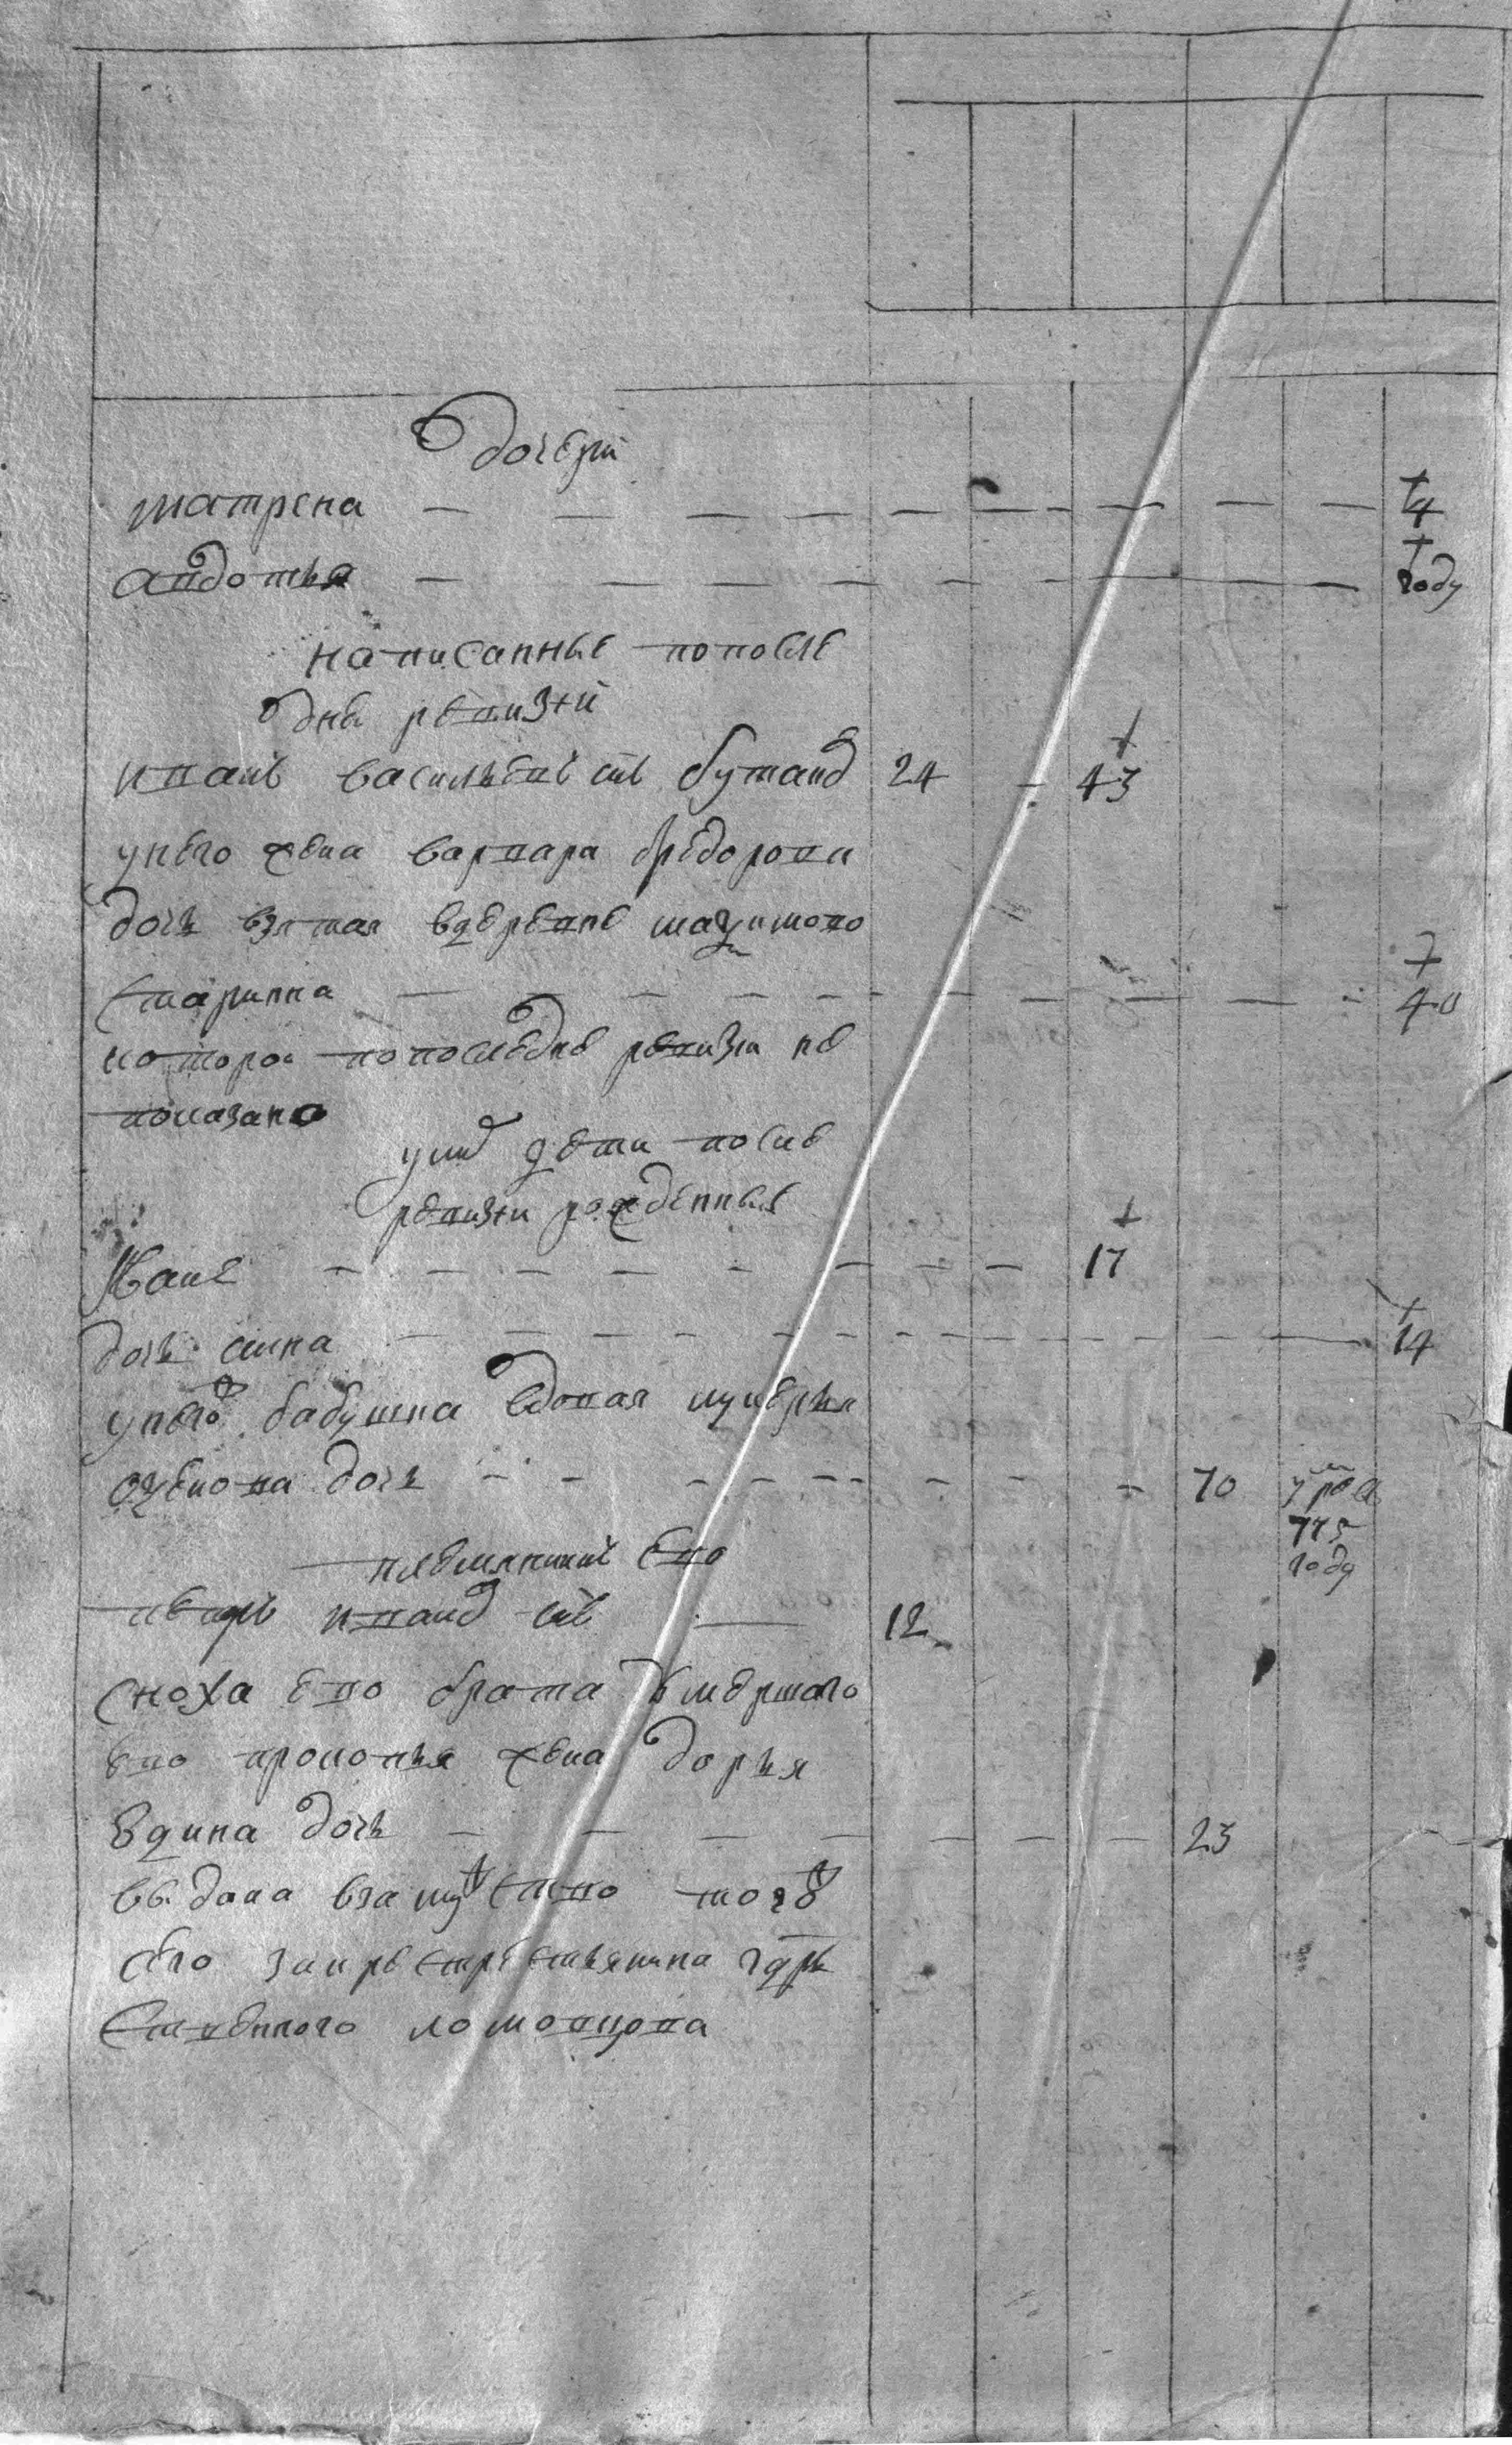 дочери
матрена — — — — — — — — — — 4
авдотья — — — — — — — — — году
написанные попосле
дне ревизии
иванъ васильевъ снъ бутаков 24 — 43
унего жена варвара федорова
дочь взятая вдеревне
старикка — — — — — — — — — 40
которая попоследне ревизи не
показана
уних дети после
ревизи рожденные
— — — — — — — — 17
дочь анна — — — — — — — — — — 14
унего бабушка вдовая лукерья
дочь — — — — — — — — 70 умре
775
году
племянникъ ево
петръ иванов снъ — 12
сноха ево брата умершаго
ево прокопья жена дарья
дочь — — — — — — — 23
выдана взамуство тогоже
села крестьянина гдрь
ственного ломовцова